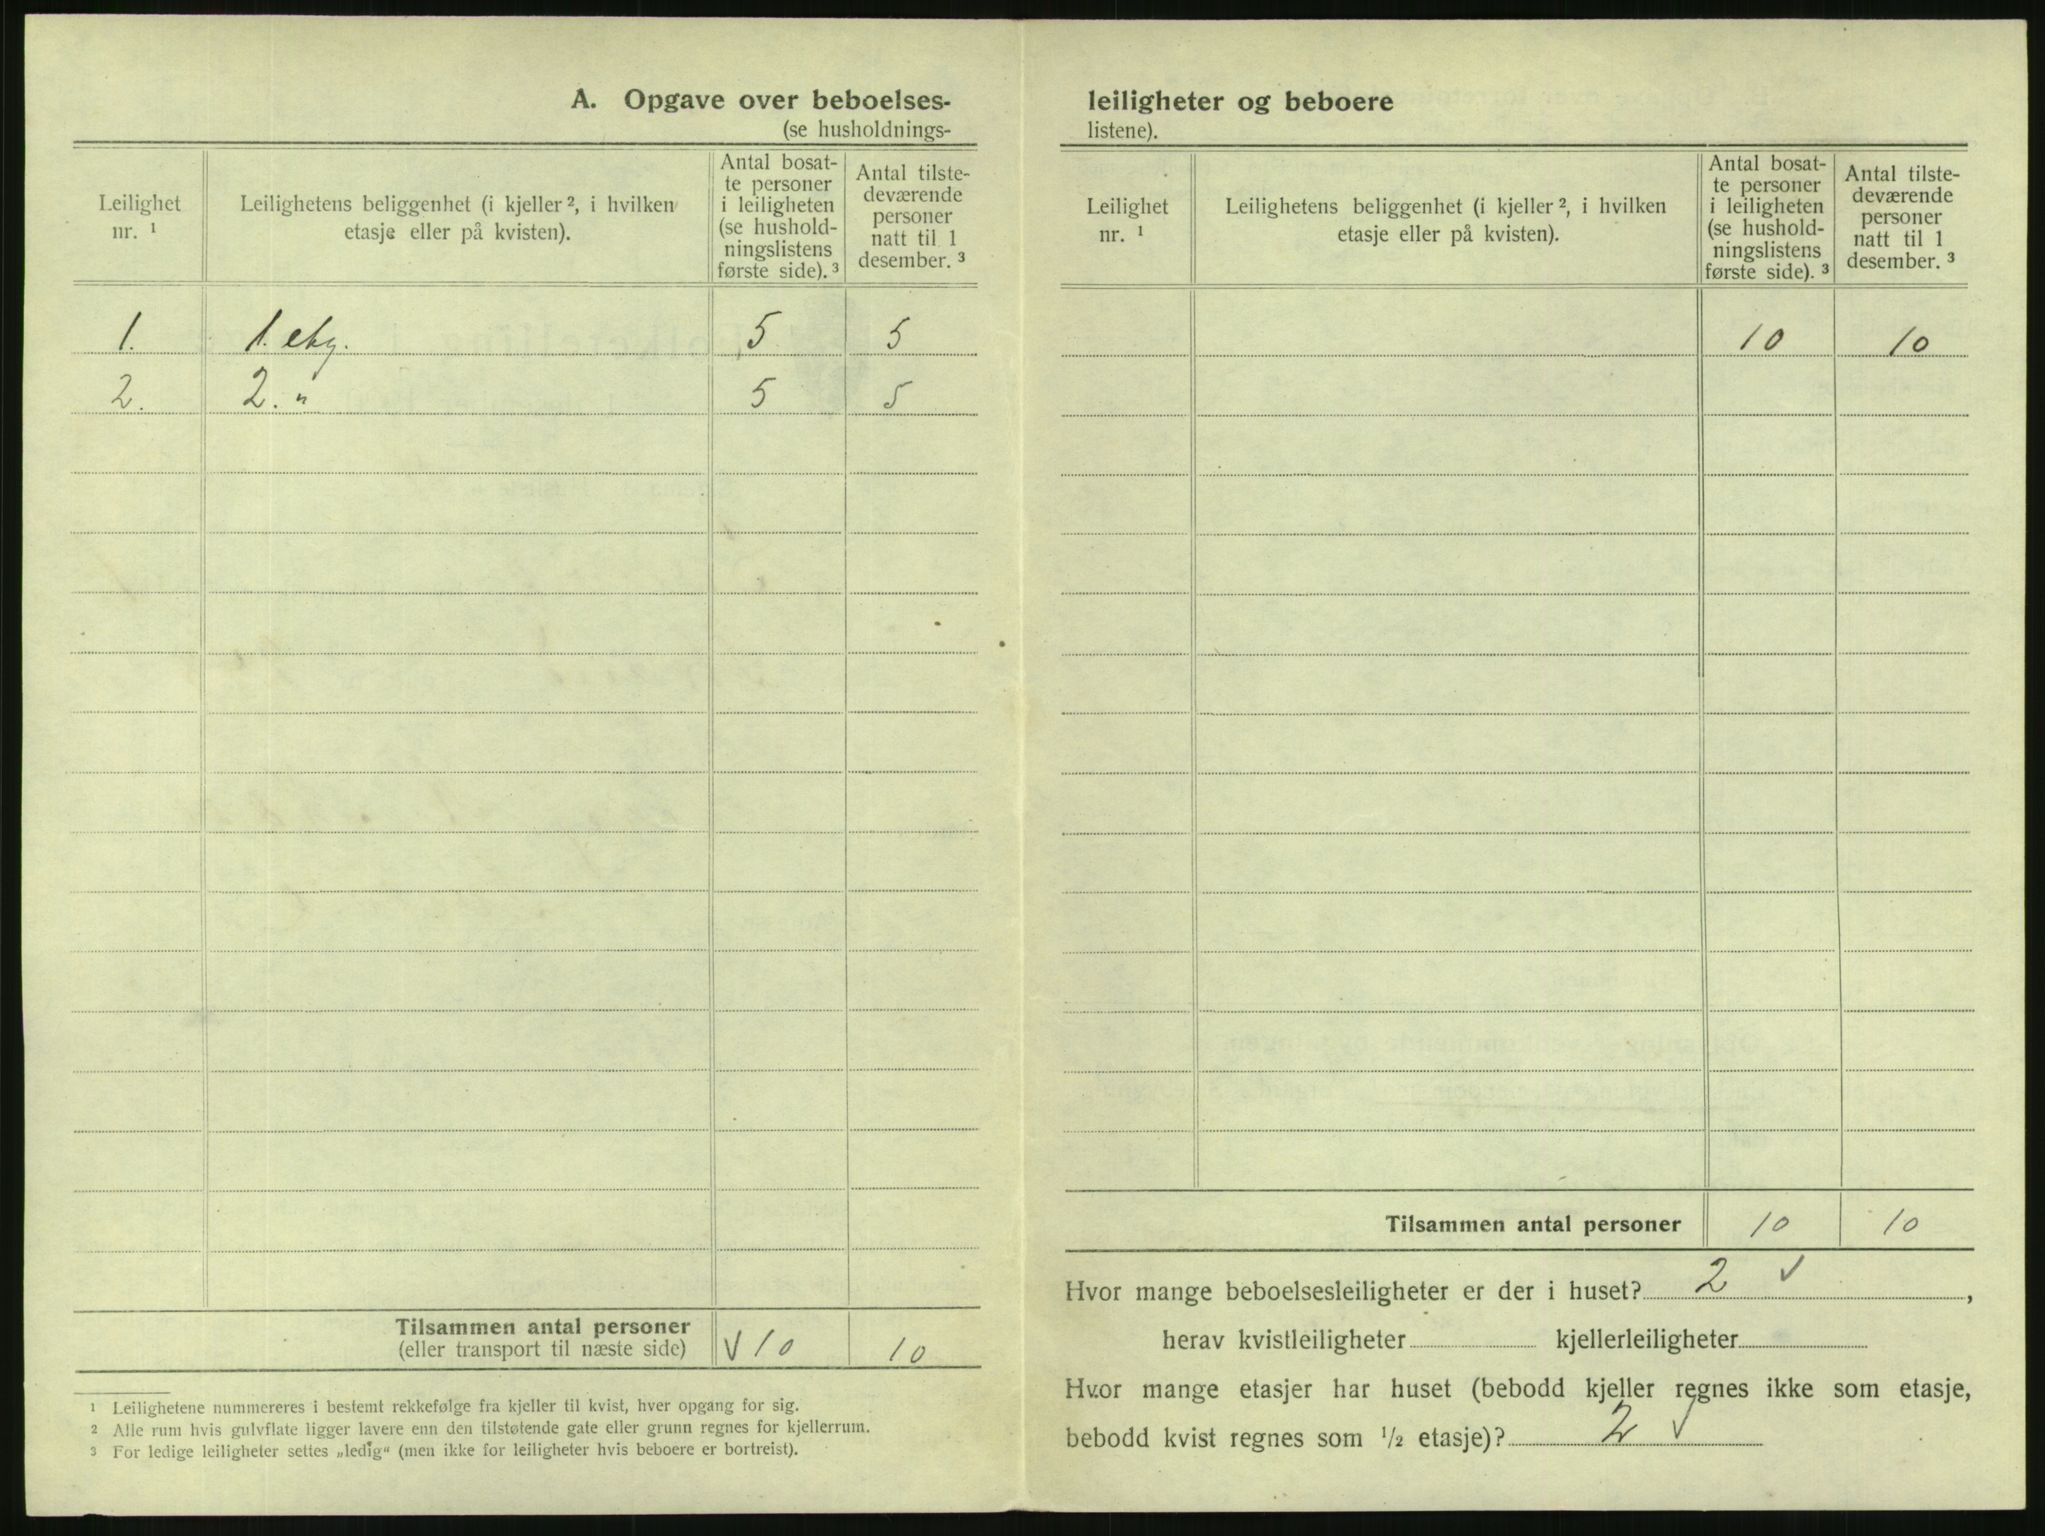 A. Opgave over beboelses-
(se husholdnings-
Leilighet nr. 1
Leilighetens beliggenhet (i kjeller 2, i hvilken
etasje eller på kvisten).
Antal bosat-
te personer
i leiligheten
(se hushold-
ningslistens
første side). 3
Antal tilste-
deværende
personer
natt til 1
desember. 3
1. 1. etg. 5 5
2. 2. " 5 5
Tilsammen antal personer
(eller transport til næste side) √ 10 10
1 Leilighetene nummereres i bestemt rekkefølge fra kjeller til kvist, hver opgang for sig.
2 Alle rum hvis gulvflate ligger lavere enn den tilstøtende gate eller grunn regnes for kjellerrum.
3 For ledige leiligheter settes „ledig“ (men ikke for leiligheter hvis beboere er bortreist).
leiligheter og beboere
listene).
Leilighet nr. 1
Leilighetens beliggenhet (i kjeller 2, i hvilken
etasje eller på kvisten).
Antal bosat-
te personer
i leiligheten
(se hushold-
ningslistens
første side). 3
Antal tilste-
deværende
personer
natt til 1
desember. 3
10 10
Tilsammen antal personer 10 10
Hvor mange beboelsesleiligheter er der i huset? 2 √,
herav kvistleiligheter kjellerleiligheter
Hvor mange etasjer har huset (bebodd kjeller regnes ikke som etasje,
bebodd kvist regnes som 1/2 etasje)? 2 √